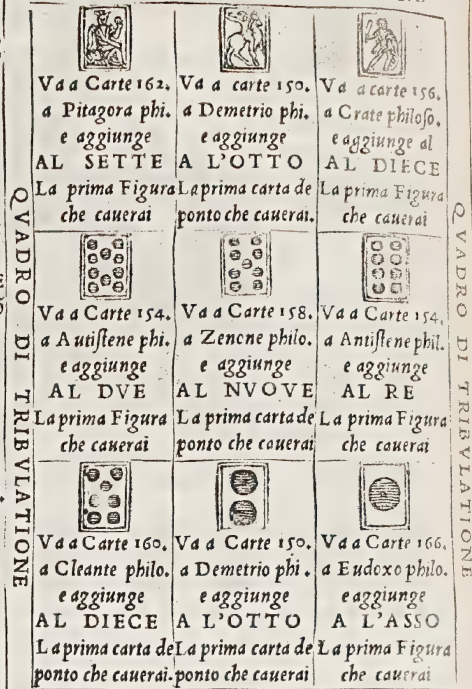 QVADRO DI TRIBVLATIONE
Va a Carte 162.
a Pitagora phi.
e aggiunge
AL SETTE
La prima Figura
che cauerai
Va a carte 150.
a Demetrio phi.
e aggiunge
A L'OTTO
La prima carta de
ponto che cauerai.
Va a carte 156.
a Crate philoso.
e aggiunge al
AL DIECE
La prima Figura
che cauerai
Va a Carte 154.
a Autistene phi.
e aggiunge
AL DVE
La prima Figura
che cauerai
Va a Carte 158.
a Zenone philo.
e aggiunge
AL NVOVE
La prima carta de
ponto che cauerai
Va a Carte 154.
a Antistene phil.
e aggiunge
AL RE
La prima Figura
che cauerai
Va a Carte 160.
a Cleante philo.
e aggiunge
AL DIECE
La prima carta de
ponto che cauerai.
Va a Carte 150.
a Demetrio phi.
e aggiunge
A L'OTTO
La prima carta de
ponto che cauerai
Va a Carte 166.
a Eudoxo philo.
e aggiunge
A L'ASSO
La prima Figura
che cauerai
QVADRO DI TRIBVLATIONE